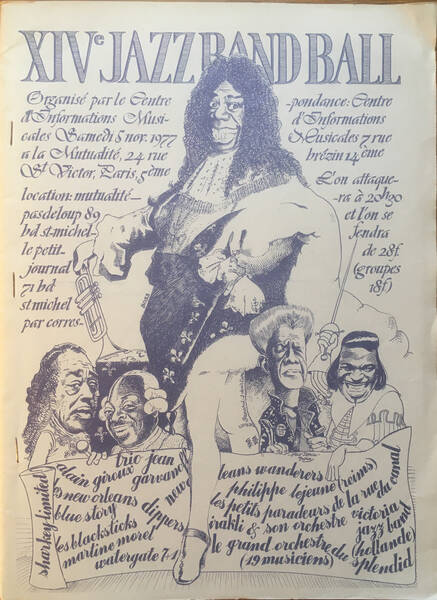 XIVe JAZZ BAND BALL
Organisé par le Centre
d'Informations Musi-
cales Samedi 5 nov. 1977
a la Mutualité, 24 rue
St Victor, Paris, 5ème
location: mutualité_
pasdeloup 89
bd st-michel_
le petit-
journal
71 bd
st michel
par corres-
-pondance: Centre
d'Informations
Musicales 7 rue
brézin 14ème
L'on attaque-
ra à 20h30
et l'on se
fendra
de 28f.
(groupes
18f)
sharkey limited
alain giroux
trio jean
garvanoff
les new orleans
blue story
new
dippers
les blacksticks
martine morel
watergate 7+1
jeans wanderers
philippe lejeune (reims)
les petits paradeurs de la rue du canal
irakli & son orchestre
victoria
jazz band
(hollande)
le grand orchestre du splendid
(19 musiciens)